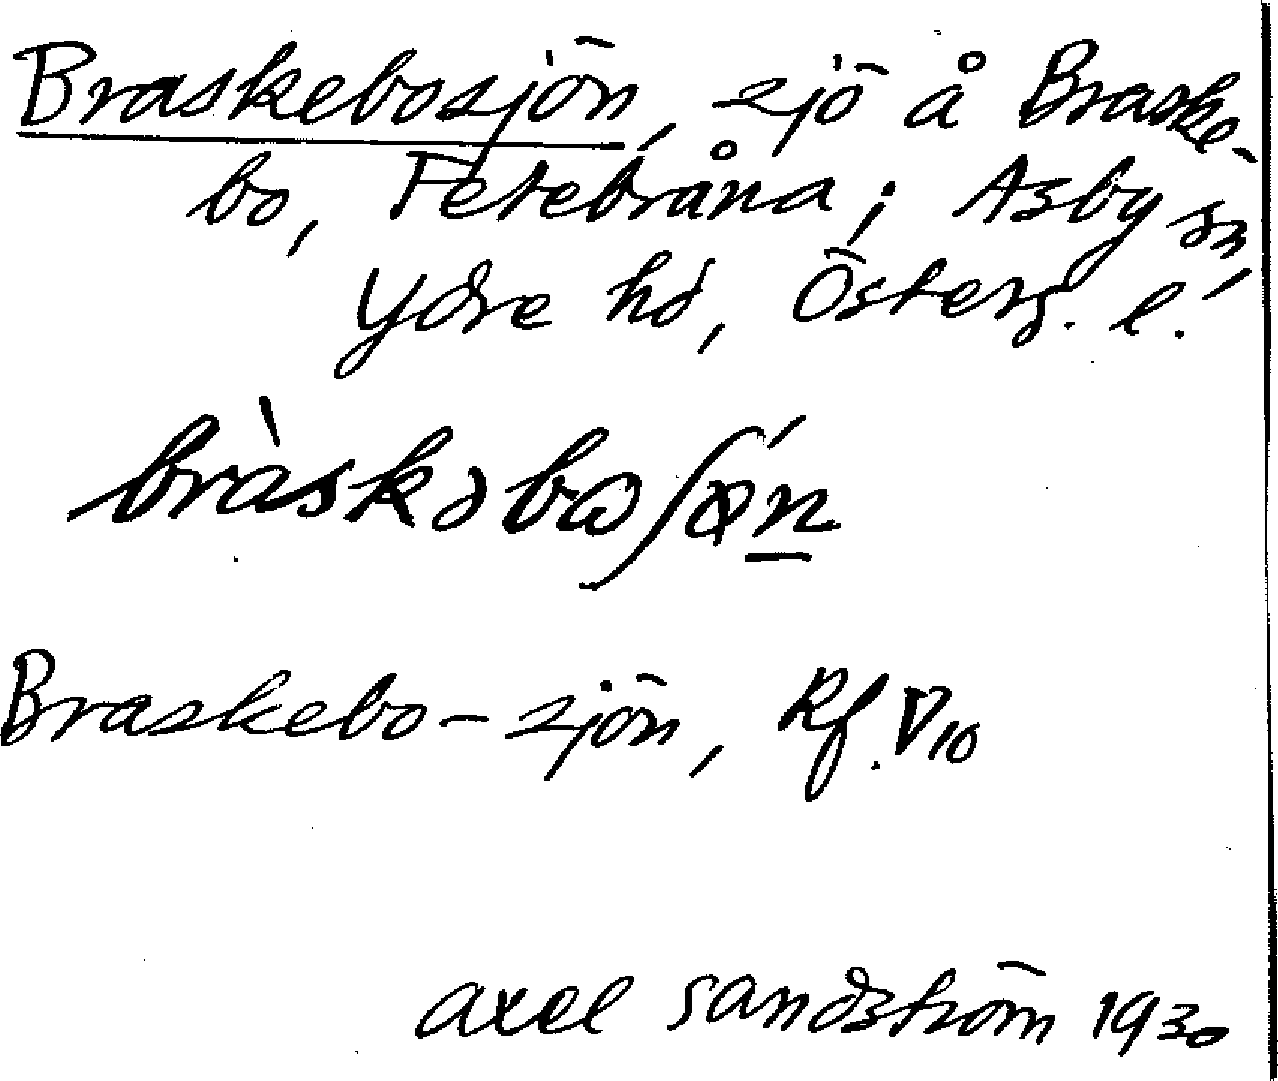 Braskebosjön, sjö å Braske-
bo, Fetebråna; Asby sn,
Ydre hd, Österg. l.
bràskəbωʃø´n
Braskebo-sjön, Rf. V 10
axel sandström 1930